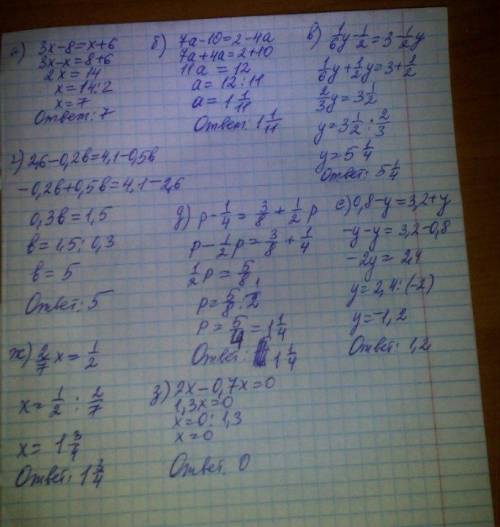 а) 3x-8=x+6
3x-x=8+6
2x=14
x=14:2
x=7
Ответ: 7
б) 7a-10=2-4a
7a+4a=2+10
11a=12
a=12:11
a=1 1/11
Ответ: 1 1/11
в) 1/6y-1/2=3-1/2y
1/6y+1/2y=3+1/2
2/3y=3 1/2
y=3 1/2:2/3
y=5 1/4
Ответ: 5 1/4
г) 2,6-0,2в=4,1-0,5в
-0,2в+0,5в=4,1-2,6
0,3в=1,5
в=1,5:0,3
в=5
Ответ: 5
д) p-1/4=3/8+1/2p
p-1/2p=3/8+1/4
1/2p=5/8
p=5/8:2
p=5/4=1 1/4
Ответ: 1 1/4
е) 0,8-y=3,2+y
-y-y=3,2-0,8
-2y=2,4
y=2,4:(-2)
y=-1,2
Ответ: 1,2
ж) 2/7x=1/2
x=1/2:2/7
x=1 3/4
Ответ: 1 3/4
з) 2x-0,7x=0
1,3x=0
x=0:1,3
x=0
Ответ. 0